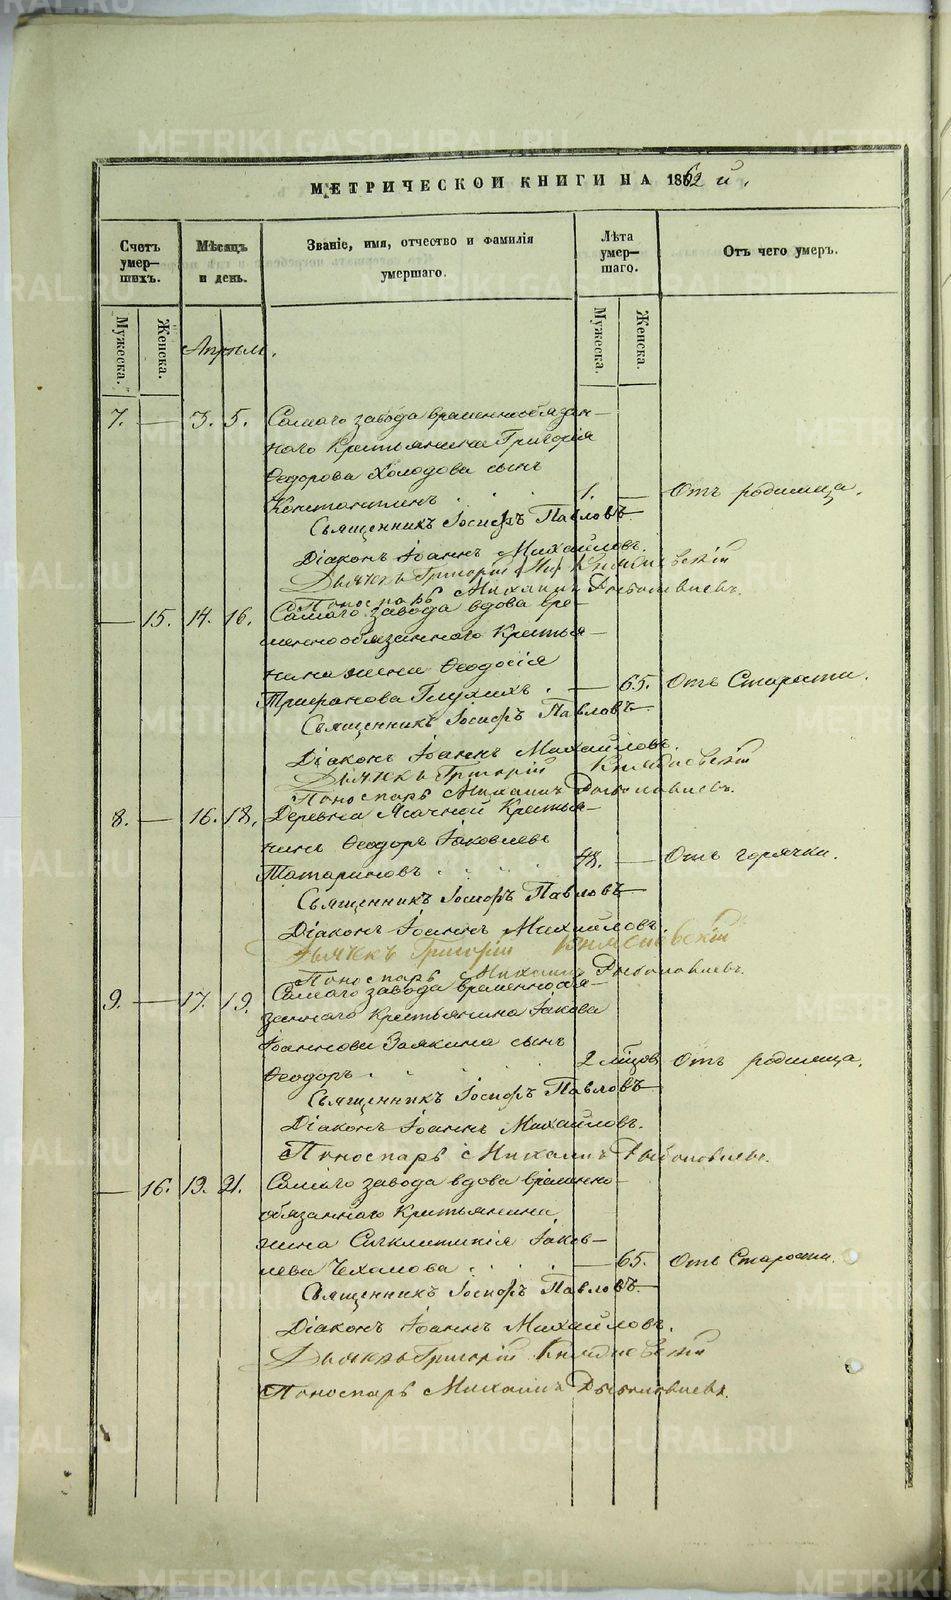 МЕТРИЧЕСКОЙ КНИГИ НА 1862 й.
Счетъ умер-шихъ.
Мѣсяцъ и день.
Званіе, имя, отчество и фамилія умершаго.
Лѣта умер-шаго.
Отъ чего умеръ.
Мужеска.
Женска.
Мужеска.
Женска.
Апрѣль.
7. — 3. 5. Самаго завода временнообязан-
наго Крестьянина Григорія
Ѳедорова Холодова сынъ
Константинъ . . . 1. — Отъ родимца.
Священникъ Іосифъ Павловъ
Діаконъ Іоаннъ Михайловъ.
Дьячекъ Григорій
Пономарь Михаилъ
— 15. 14. 16. Самаго завода вдова вре-
меннообязаннаго Крестья-
нина жена Ѳеодосія
Трифанова Глухихъ . — 65. Отъ Старости.
Священникъ Іосифъ Павловъ
Діаконъ Іоаннъ Михайловъ.
Дьячекъ Григорій
Пономарь Михаилъ
8. — 16. 18. Деревни Ясачной Крестья-
нинъ Ѳеодоръ Іаковлевъ
Татариновъ . . . 48. — Отъ горячки.
Священникъ Іосифъ Павловъ
Діаконъ Іоаннъ Михайловъ.
Дьячекъ Григорій
Пономарь Михаилъ
9. — 17. 19. Самаго завода временнообя-
заннаго Крестьянина Іакова
Іоаннова Заякина сынъ
Ѳеодоръ . . . 2 мѣсцов Отъ родимца.
Священникъ Іосифъ Павловъ
Діаконъ Іоаннъ Михайловъ.
Пономарь Михаилъ
— 16. 19. 21. Самаго завода вдова временно-
обязаннаго Крестьянина
жена Сигклитикія Іаков-
лева Чехамова . . . — 65. Отъ Старости.
Священникъ Іосифъ Павловъ.
Діаконъ Іоаннъ Михайловъ.
Дьячекъ Григорій
Пономарь Михаилъ
METRIKI.GASO-URAL.RU